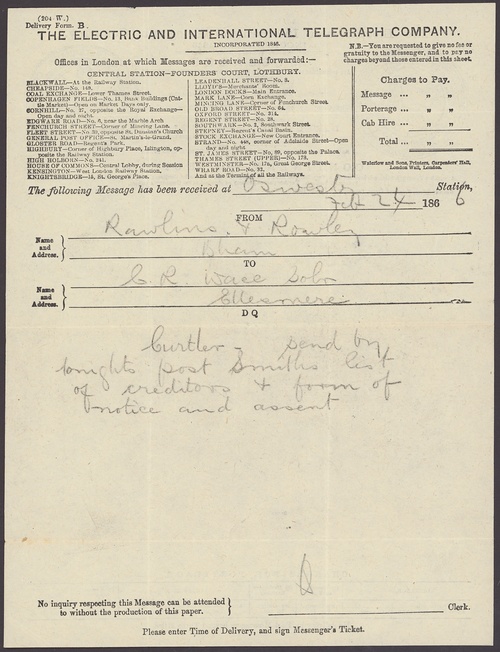 (204 W.)
Delivery Form B.
THE ELECTRIC AND INTERNATIONAL TELEGRAPH COMPANY.
INCORPORATED 1846.
Offices in London at which Messages are received and forwarded:—
CENTRAL STATION—FOUNDERS' COURT, LOTHBURY.
BLACKWALL—At the Railway Station.
CHEAPSIDE—No. 148.
COAL EXCHANGE—Lower Thames Street.
COPENHAGEN FIELDS—No. 13, Bank Buildings (Cattle Market)—Open on Market Days only.
CORNHILL—No. , opposite the Royal Exchange—Open day and night.
EDGWARE ROAD—No. 6, near the Marble Arch
FENCHURCH STREET—Corner of Mincing Lane.
FLEET STREET—No. , opposite St. Dunstan's Church
GENERAL POST OFFICE—St. Martin's-le-Grand.
GLOSTER ROAD—Regent's Park.
HIGHBURY—Corner of Highbury Place, Islington, opposite the Railway Station.
HIGH HOLBORN—No. 241.
HOUSE OF COMMONS—Central Lobby, during Session
KENSINGTON—West London Railway Station.
KNIGHTSBRIDGE—15, St. George's Place.
LEADENHALL STREET—No. .
LLOYD'S—Merchants' Room.
LONDON DOCKS—Main Entrance.
MARK LANE—Corn Exchange.
MINCING LANE—Corner of Fenchurch Street.
OLD BROAD STREET—No. 64.
OXFORD STREET—No. 314.
REGENT STREET—No. .
SOUTHWARK—No. , Southwark Street.
STEPNEY—Regent's Canal Basin.
STOCK EXCHANGE—New Court Entrance.
STRAND—No. 448, corner of Adelaide Street—Open day and night.
ST. JAMES STREET—No. 89, opposite the Palace.
THAMES STREET (UPPER)—No. 178.
WESTMINSTER—No. 17A, Great George Street.
WHARF ROAD—No. 32.
And as the Termini of all the Railways.
N.B.—You are requested to give no fee or
gratuity to the Messenger, and to pay no
charges beyond those entered in this sheet.
Charges to Pay.
Message ... „ „
Porterage ... „ „
Cab Hire ... „ „
Total ... „ „
Waterlow and Sons, Printers, Carpenters' Hall,
London Wall, London.
The following Message has been received at Oswestry Station,
Feb 24 1866
FROM
Name and Address. } Rawlins & Rowley
Bham
TO
Name and Address. } C. R. Wace Solr
Ellesmere
D Q
Curtler – send by
tonights post Smiths list
of creditors & form of
notice and assent
No inquiry respecting this Message can be attended
to without the production of this paper. }
Clerk.
Please enter Time of Delivery, and sign Messenger's Ticket.